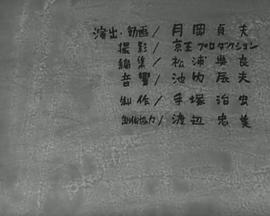 演出・動画/月岡貞夫
撮影/京王プロダクション
編集/松浦典良
音響/池内辰夫
制作/手塚治虫
制作協力/渡辺忠美